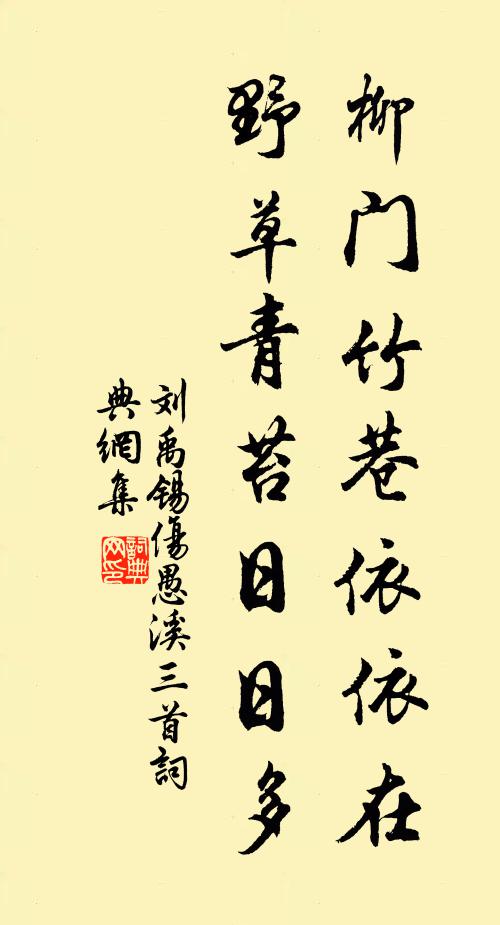 柳门竹巷依依在
野草青苔日日多
刘禹锡伤愚溪三首詞
典網集
詞典网印